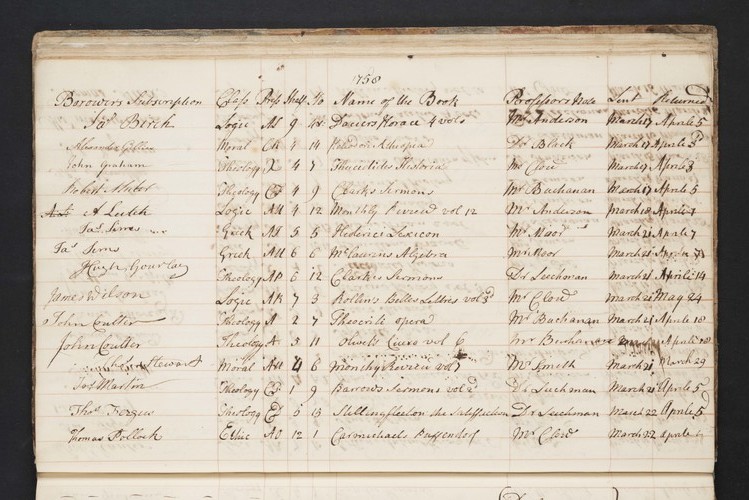 1758
Barowers Subscription Class Press Shelf No Name of the Book Professors Lent Returned
Jas Birch Logic AS 9 Daciers Horace 4 vols Mr Anderson March 17 Aprile 5
Moral 4 14 Dr Black March 17 Aprile 3d
John Graham Theology X 4 7 Thucidides Historia Mr Clow March 17 Aprile 3
Theology 4 9 Clarks Sermons Mr Buchanan March 17 Aprile 5
A Leitch Logic AU 4 12 Monthly Review vol 12 Mr Anderson March 18 Aprile
Greek AS 5 5 Hederici Lexicon Mr Moor March 21 Aprile 7
Greek AU 6 6 McLaurins Algebra Mr Moor March 21 Aprile
Hugh Gourlay Theology AP 6 12 Clarks Sermons Dr Leechman March 21 Aprile 14
James Wilson Logic AK 7 3 Rollins Belles Lettres vol 3d Mr Clow March 21 May 24
John Coulter Theology A 2 7 Theocriti opera Mr Buchanan March 21 Aprile 18
John Coulter Theology A 5 11 Oliveti Cicero vol 6 Mr Buchanan Aprile 18
Stewart Moral AU 4 6 Monthly Review vol 7 Mr Smith March 21 March 29
Jos Martin Theology 1 9 Barrows Sermons vol 2d Dr Leechman March 21 Aprile 5
Thos Fergus Theology 6 13 Stillingfleet on the Satisfaction Dr Leechman March 22 Aprile 5
Thomas Pollock Ethic AO 12 1 Carmichael Puffendorf Mr Clow March 22 Aprile